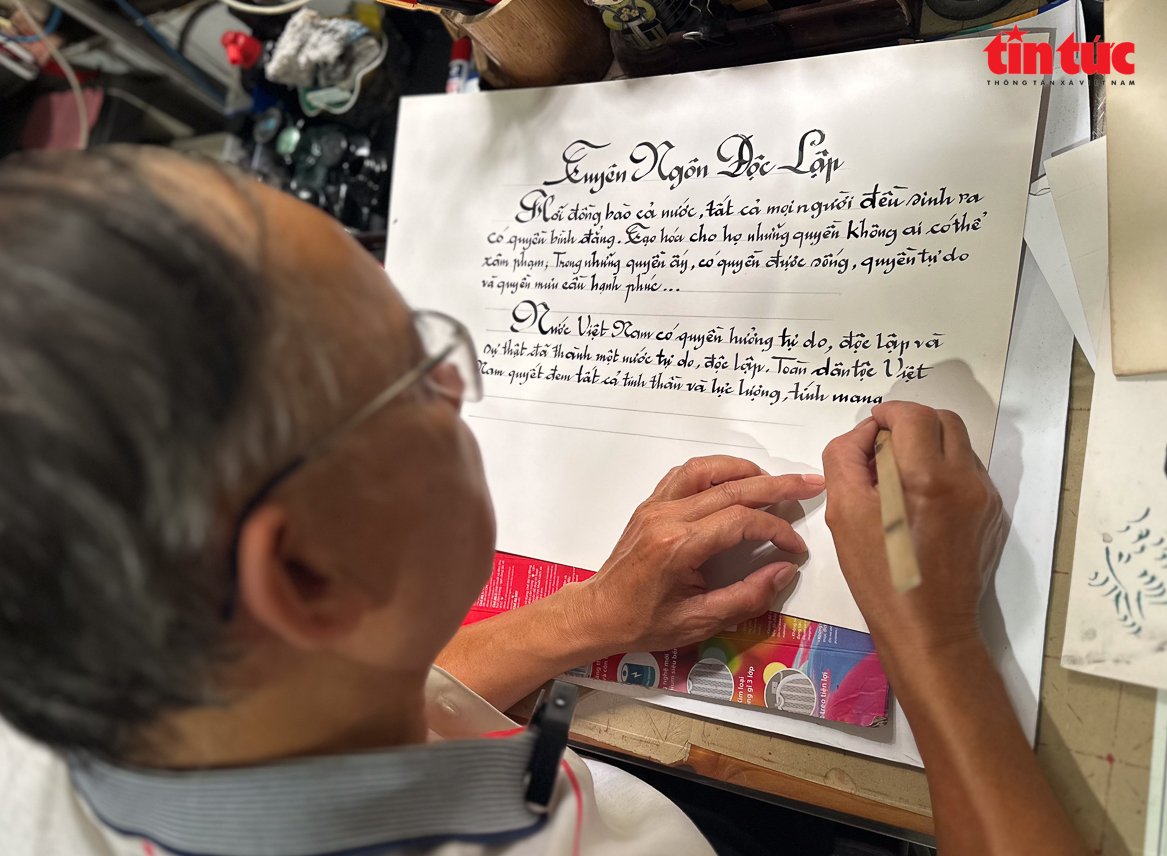 tin tức
THÔNG TẤN XÃ VIỆT NAM
Tuyên Ngôn Độc Lập
Hỡi đồng bào cả nước, tất cả mọi người đều sinh ra
có quyền bình đẳng. Tạo hóa cho họ những quyền không ai có thể
xâm phạm; Trong những quyền ấy, có quyền được sống, quyền tự do
và quyền mưu cầu hạnh phúc...
Nước Việt Nam có quyền hưởng tự do, độc lập và
sự thật đã thành một nước tự do, độc lập. Toàn dân tộc Việt
Nam quyết đem tất cả tinh thần và lực lượng, tính mạng